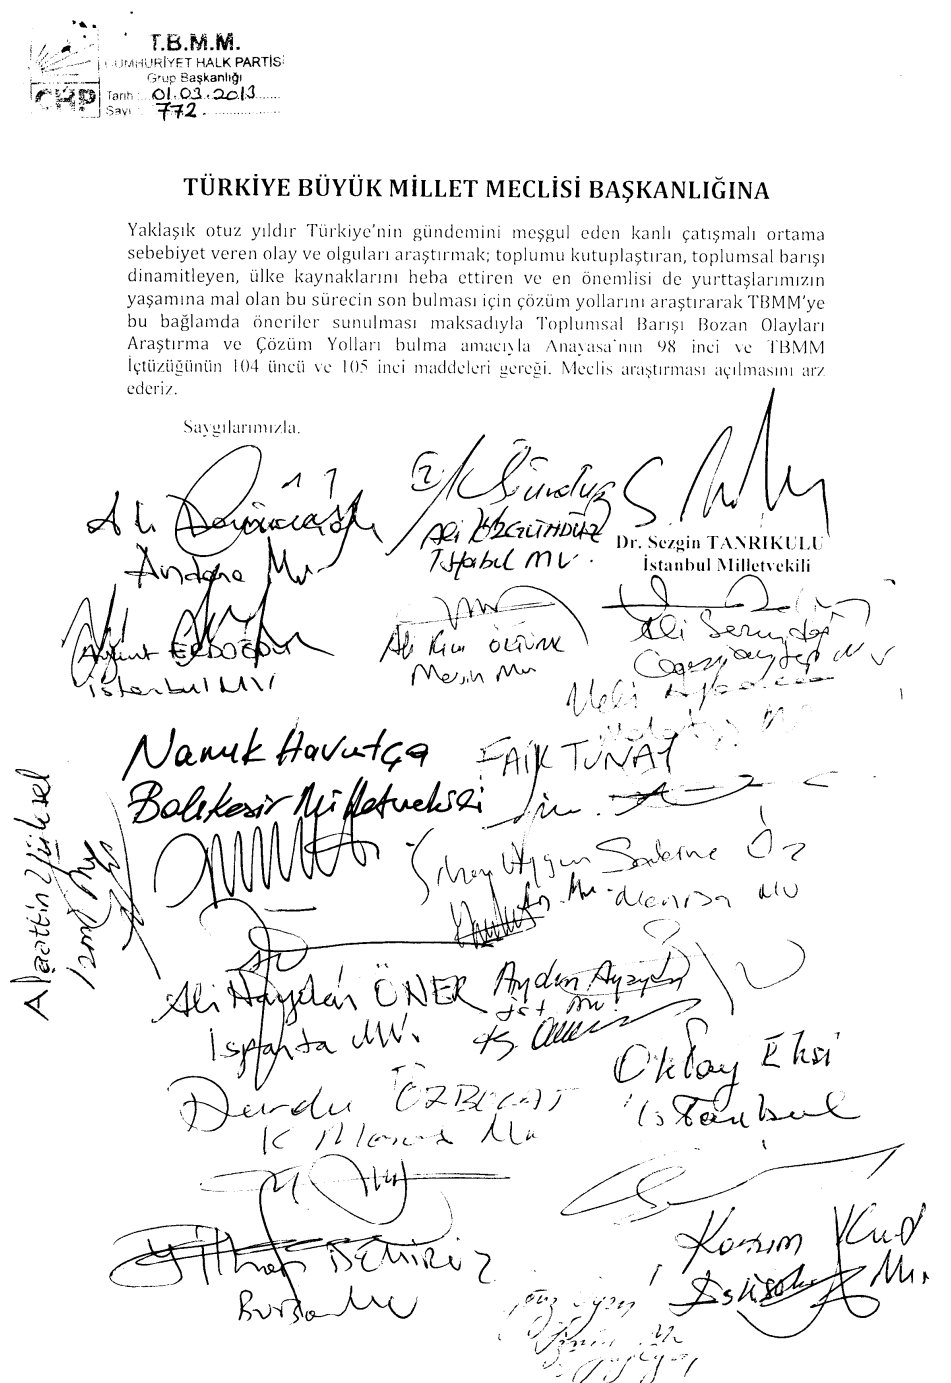 T.B.M.M.
CUMHURİYET HALK PARTİSİ
Grup Başkanlığı
CHP
Tarih : 01.03.2013
Sayı : 772.
TÜRKİYE BÜYÜK MİLLET MECLİSİ BAŞKANLIĞINA
Yaklaşık otuz yıldır Türkiye'nin gündemini meşgul eden kanlı çatışmalı ortama
sebebiyet veren olay ve olguları araştırmak; toplumu kutuplaştıran, toplumsal barışı
dinamitleyen, ülke kaynaklarını heba ettiren ve en önemlisi de yurttaşlarımızın
yaşamına mal olan bu sürecin son bulması için çözüm yollarını araştırarak TBMM'ye
bu bağlamda öneriler sunulması maksadıyla Toplumsal Barışı Bozan Olayları
Araştırma ve Çözüm Yolları bulma amacıyla Anayasa'nın 98 inci ve TBMM
İçtüzüğünün 104 üncü ve 105 inci maddeleri gereği. Meclis araştırması açılmasını arz
ederiz.
Saygılarımızla.
Ali
Ali ÖZGÜNDÜZ
İstanbul MV.
Dr. Sezgin TANRIKULU
İstanbul Milletvekili
Aykut ERDOĞDU
İstanbul MV
Ali Rıza ÖZTÜRK
Mersin MV
Ali Serindağ
Gaziantep MV
Veli
Malatya MV
Namık Havutça
Balıkesir Milletvekili
FAİK TUNAY
Alaattin Yüksel
İzmir MV
Sakine Öz
Manisa MV
Ali Haydar ÖNER
Isparta MV.
Aydın Ayaydın
İst. MV.
Durdu ÖZBOLAT
K Maraş MV
Oktay Ekşi
İstanbul
İlhan DEMİRÖZ
Bursa MV
Kazım Kurt
Eskişehir MV.